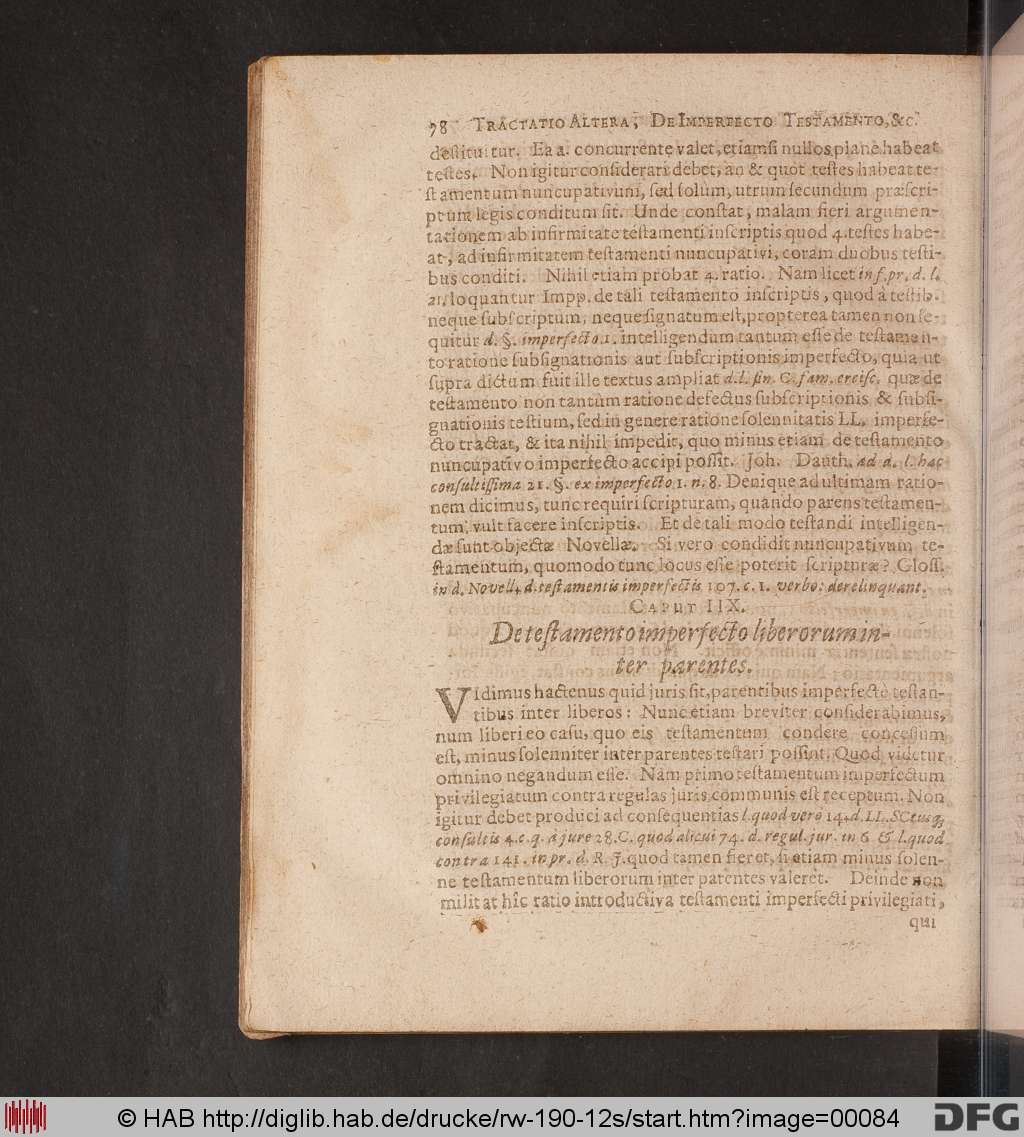 78 TRACTATIO ALTERA, DE IMPERFECTO TESTAMENTO, &c.
destituitur. Ea a. concurrente valet, etiamsi nullos planè habeat
testes. Non igitur considerari debet, an & quot testes habeat te-
stamentum nuncupativum, sed solùm, utrum secundum præscri-
ptum legis conditum sit. Unde constat, malam fieri argumen-
tationem ab infirmitate testamenti inscriptis quod 4. testes habe-
at, ad infirmitatem testamenti nuncupativi, coram duobus testi-
bus conditi. Nihil etiam probat 4. ratio. Nam licet in f. pr. d. l.
21. loquantur Impp. de tali testamento inscriptis, quod à testib.
neque subscriptum, neque signatum est, propterea tamen non se-
quitur d. §. imperfecto 1. intelligendum tantum esse de testamen-
to ratione subsignationis aut subscriptionis imperfecto, quia ut
supra dictum fuit ille textus ampliat d. l. fin. C. fam. ercisc. quæ de
testamento non tantùm ratione defectus subscriptionis & subsi-
gnationis testium, sed in genere ratione solennitatis LL. imperfe-
cto tractat, & ita nihil impedit, quo minus etiam de testamento
nuncupativo imperfecto accipi possit. Joh. Dauth. ad d. l. hac
consultissima 21. §. ex imperfecto 1. n. 8. Denique ad ultimam ratio-
nem dicimus, tunc requiri scripturam, quando parens testamen-
tum vult facere inscriptis. Et de tali modo testandi intelligen-
dæ sunt objectæ Novellæ. Si vero condidit nuncupativum te-
stamentum, quomodo tunc locus esse poterit scripturæ? Gloss.
in d. Novell. d. testamentis imperfectis 107. c. 1. verbo: derelinquant.
CAPUT IIX.
De testamento imperfecto liberorum in-
ter parentes.
VIdimus hactenus quid juris sit, parentibus imperfectè testan-
tibus inter liberos: Nunc etiam breviter considerabimus,
num liberi eo casu, quo eis testamentum condere concessum
est, minus solenniter inter parentes testari possint. Quod videtur
omnino negandum esse. Nam primo testamentum imperfectum
privilegiatum contra regulas juris communis est receptum. Non
igitur debet produci ad consequentias l. quod verò 14. d. LL. SCtusq;
consultis 4. c. q. à jure 28. C. quod alicui 74. d. regul. jur. in 6 & l. quod
contra 141. in pr. d. R. J. quod tamen fieret, si etiam minus solen-
ne testamentum liberorum inter parentes valeret. Deinde non
militat hîc ratio introductiva testamenti imperfecti privilegiati,
qui
© HAB http://diglib.hab.de/drucke/rw-190-12s/start.htm?image=00084
DFG